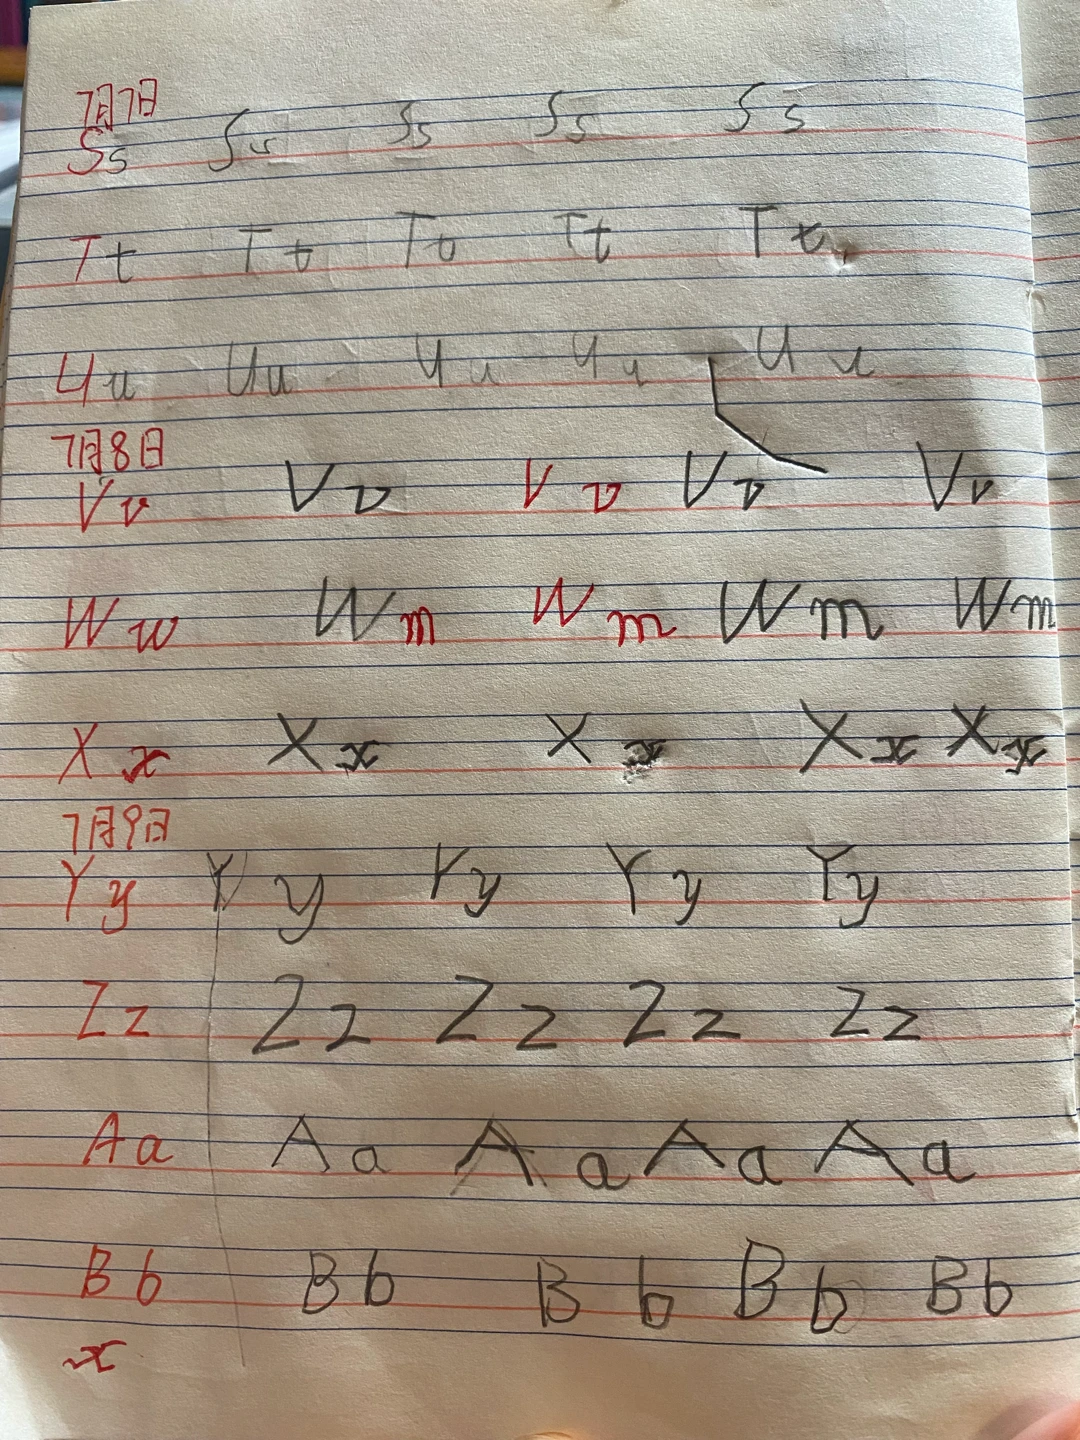 7月7日
Ss Ss Ss Ss Ss
Tt Tt Tt Tt Tt
Uu Uu Uu Uu Uu
7月8日
Vv Vv Vv Vv Vv
Ww Wm Wm Wm Wm
Xx Xx Xx Xx Xx
7月9日
Yy Yy Yy Yy Yy
Zz Zz Zz Zz Zz
Aa Aa Aa Aa Aa
Bb Bb Bb Bb Bb
x